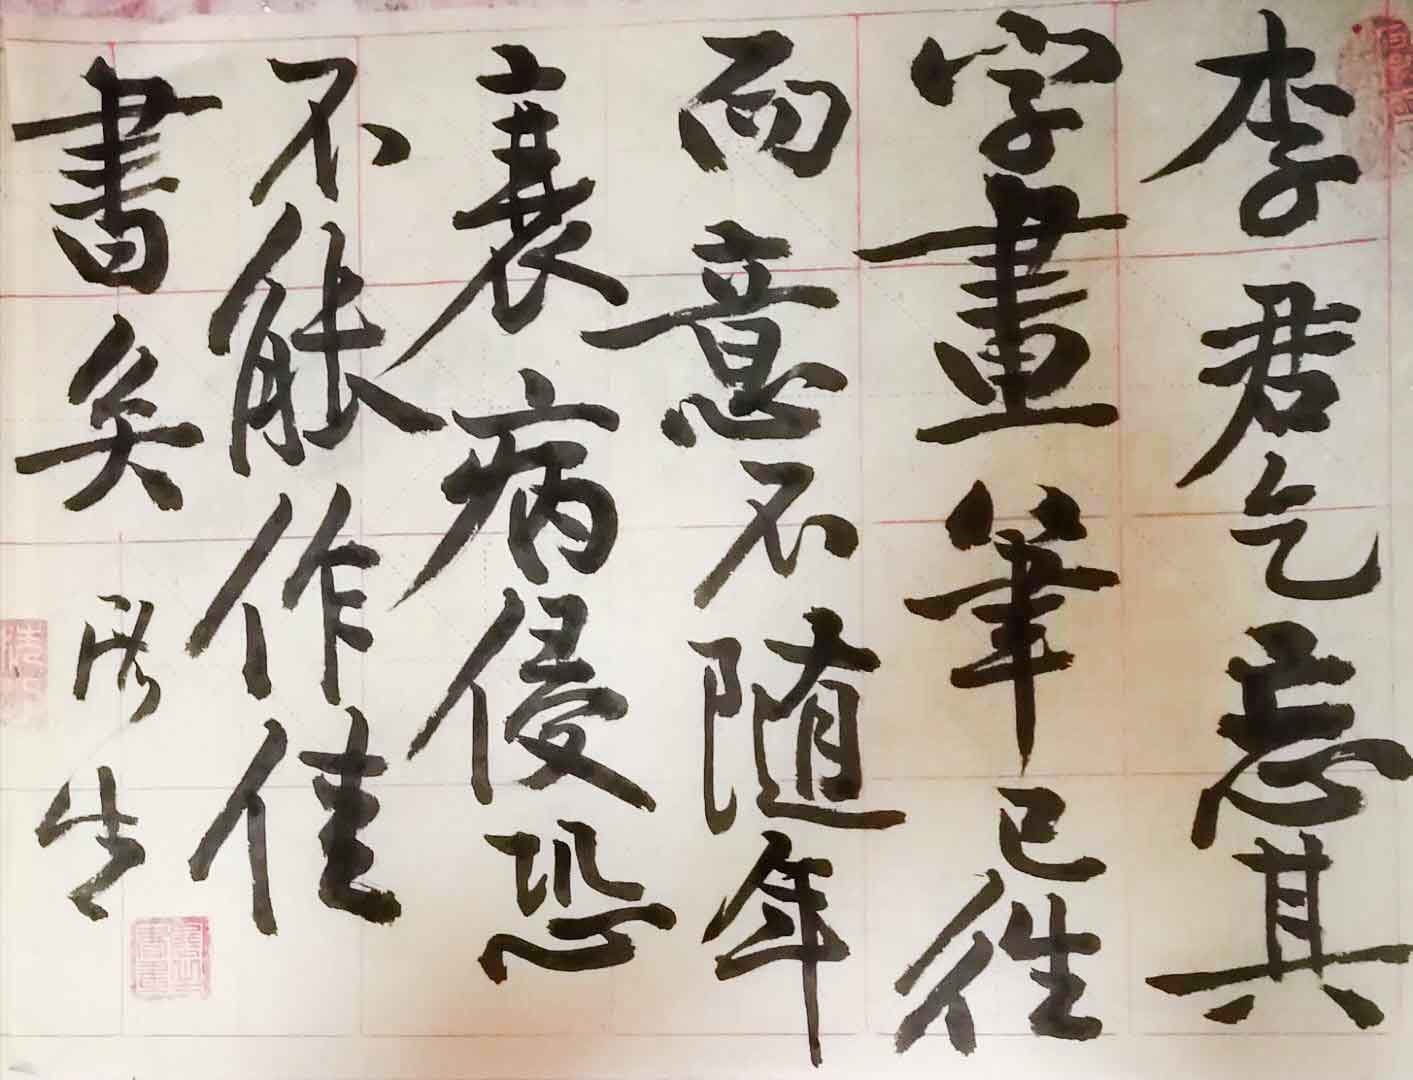 李君乞忘其
字畫筆已往
而意不随年
衰病侵恐
不能作佳
書矣